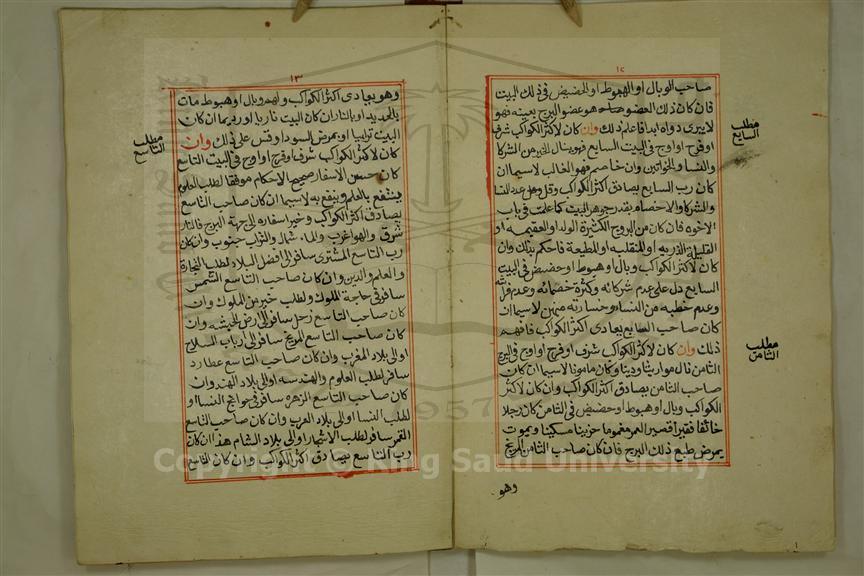 ١٢
صاحب الوبال او الهبوط او الحضيض فى ذلك البيت
فان كان ذلك العضو هو عضو البرج بعينه فهو
لا يبرى دواه ابدا فاعلم ذلك وان كان لاكثر الكواكب شرف
او فرح او اوج فى البيت السابع فهو ينال الخير من الشركا
والنسا والخواتين وان خاصم فهو الغالب لاسيما ان
كان رب السابع يصادق اكثر الكواكب وقل عدد النسا
والشركا والاخصام بقدر جوهر البيت كما علمت فى باب
الاخوه فان كان من البروج الكثيرة الولد او العقيمه او
القليلة الذريه او المنقلبه او المطيعة فاحكم بذلك وان
كان لاكثر الكواكب وبال او هبوط او حضيض فى البيت
السابع دل على عدم شركائه وكثرة خصمائه وعدم
وعدم خطيه من النسا وخسارته منهن لاسيما ان
كان صاحب السابع يعادى اكثر الكواكب فافهم
ذلك وان كان لاكثر الكواكب شرف او فرح او اوج فى البرج
الثامن نال مواريثا ودينا وكان مامونا لاسيما ان كان
صاحب الثامن يصادق اكثر الكواكب وان كان لاكثر
الكواكب وبال او هبوط او حضيض فى الثامن كان رجلا
خائفا فقيرا قصير العمر مغموما حزينا مسكينا ويموت
بمرض طبع ذلك البرج فان كان صاحب الثامن المريخ
وهو
مطلب
السابع
مطلب
الثامن
١٣
وهو يعادى اكثر الكواكب ولهم وبال او هبوط مات
بالحديد او بالنار ان كان البيت ناريا وربما ان كان
البيت ترابيا او بمرض السودا وقس على ذلك وان
كان لاكثر الكواكب شرف او فرح او اوج فى البيت التاسع
كان حسن الاسفار صحيح الاحكام موفقا لطلب العلوم
ينتفع بالعلم وينفع به لاسيما ان كان صاحب التاسع
يصادق اكثر الكواكب وخير اسفاره الى جهة البرج فالنار
شرق والهوا غرب والماء شمال والتراب جنوب وان كان
رب التاسع المشترى سافر الى افضل البلاد لطلب التجارة
والعلم والدين وان كان صاحب التاسع الشمس
سافر فى حاجة الملوك ولطلب خير من الملوك وان
كان صاحب التاسع زحل سافر الى ارض الحبشه وان
كان صاحب التاسع المريخ سافر الى ارباب السلاح
او الى بلاد المغرب وان كان صاحب التاسع عطارد
سافر لطلب العلوم والهندسه او الى بلاد الهند وان
كان صاحب التاسع الزهره سافر فى حوائج النسا او
لطلب النسا او الى بلاد العرب وان كان صاحب التاسع
القمر سافر لطلب الاشهار او الى بلاد الشام هذا ان كان
رب التاسع يصادق اكثر الكواكب وان كان التاسع
مطلب
التاسع
1957
Copyright © King Saud University